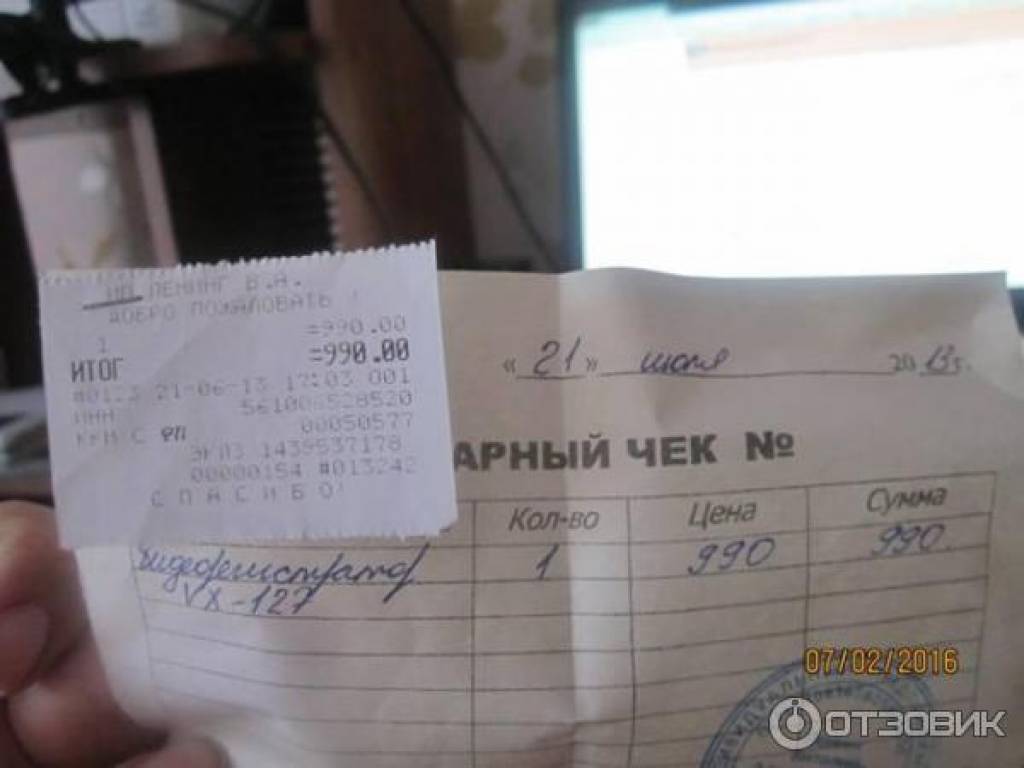 ИП ПЕННИГ В.А.
ДОБРО ПОЖАЛОВАТЬ !
=990.00
1
ИТОГ =990.00
#0123 21-06-13 17:03 001
ИНН
00050577
ККМ С ФП
ЭКЛЗ 1439537178
00000154 #013242
СПАСИБО!
«21» июля 2013г.
АРНЫЙ ЧЕК №
Кол-во Цена Сумма
Видеорегистратор 1 990 990
VX-127
07/02/2016
ОТЗОВИК